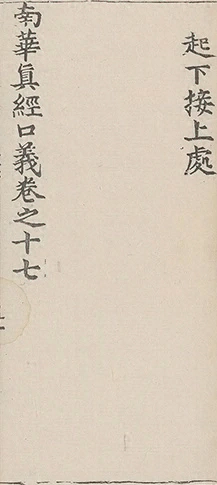 起下接上處
南華眞經口義卷之十七